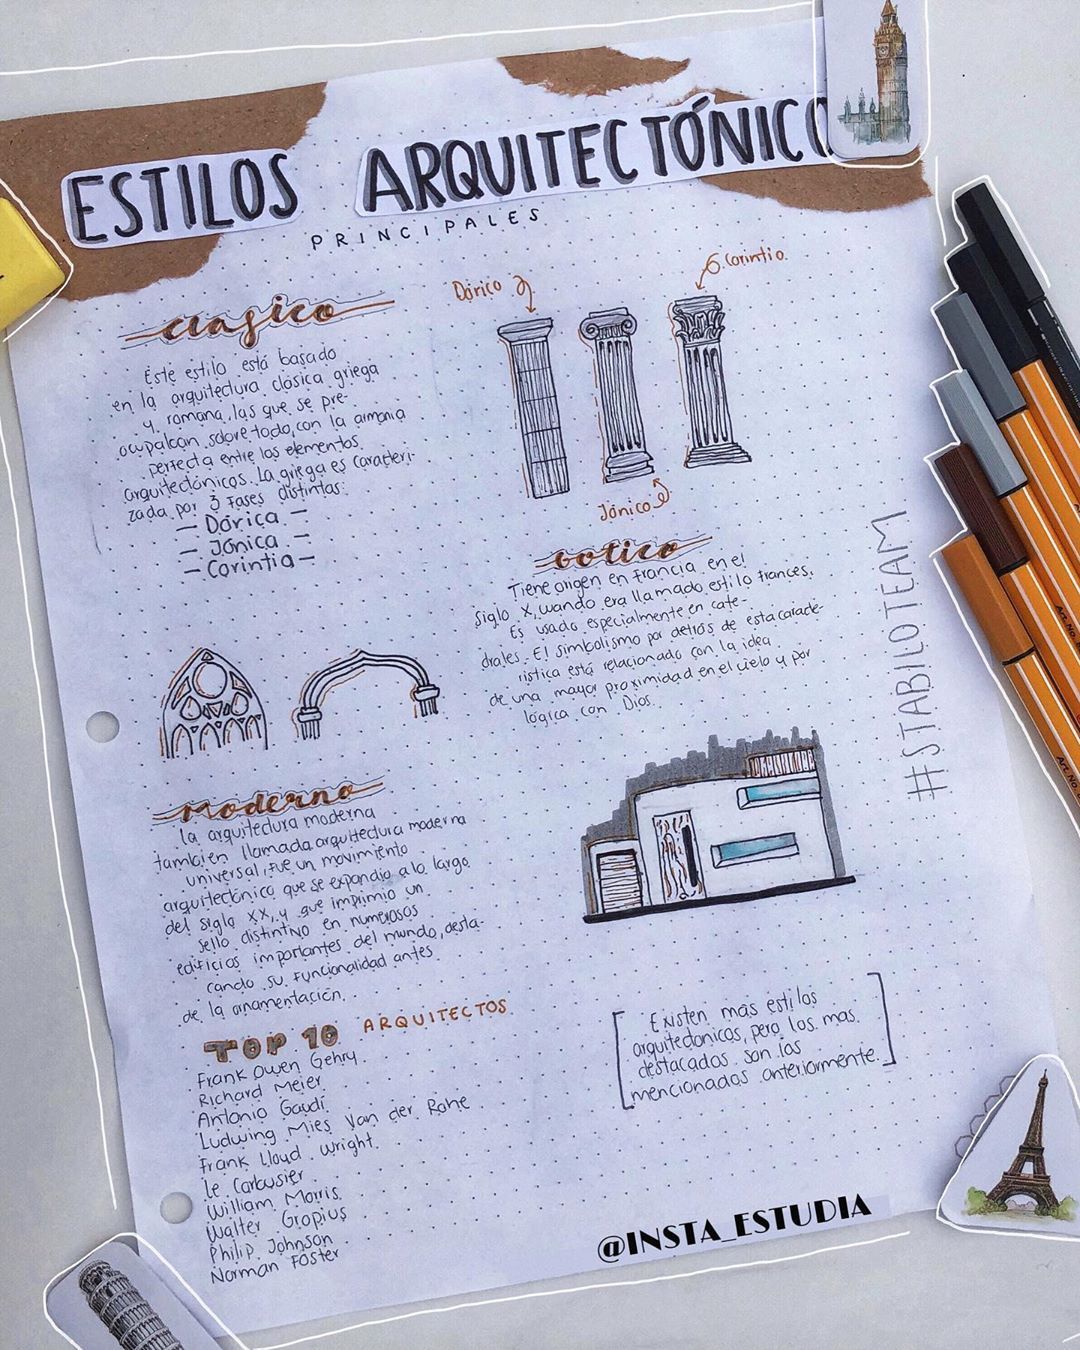 ESTILOS ARQUITECTÓNICO
PRINCIPALES
Clasico
Este estilo está basado
en la arquitectura clásica griega
y romana, las que se pre-
ocupalcan sobre todo, con la armonia
perfecta entre los elementos
arquitectónicos. La griega es caracteri-
zada por 3 fases distintas:
— Dórica —
— Jónica —
— Corintia —
Dórico
Corintio
Jónico
Gotico
Tiene origen en francia, en el
siglo X, cuando era llamado estilo frances.
Es usado especialmente en cate-
drales. El simbolismo por detrás de esta caracte-
ristica está relacionado con la idea
de una mayor proximidad en el cielo y por
lógica con Dios.
Moderno
la arquitectura moderna
tambien llamada arquitectura moderna
universal, fue un movimiento
arquitectónico que se expandio a lo largo
del siglo XX, y que imprimio un
sello distintivo en numerosos
edificios importantes del mundo, desta-
cando su funcionalidad antes
de la ornamentación.
TOP 10 ARQUITECTOS
Frank Owen Gehry.
Richard Meier
Antonio Gaudí
Ludwing Mies Van der Rohe
Frank Lloud Wright.
le Corbusier
William Morris
Walter Gropius
Philip Johnson
Norman Foster
Existen más estilos
arquitectonicos, pero los mas
destacados son los
mencionados anteriormente.
#STABILOTEAM
@INSTA_ESTUDIA
Art. No.
Art. No.